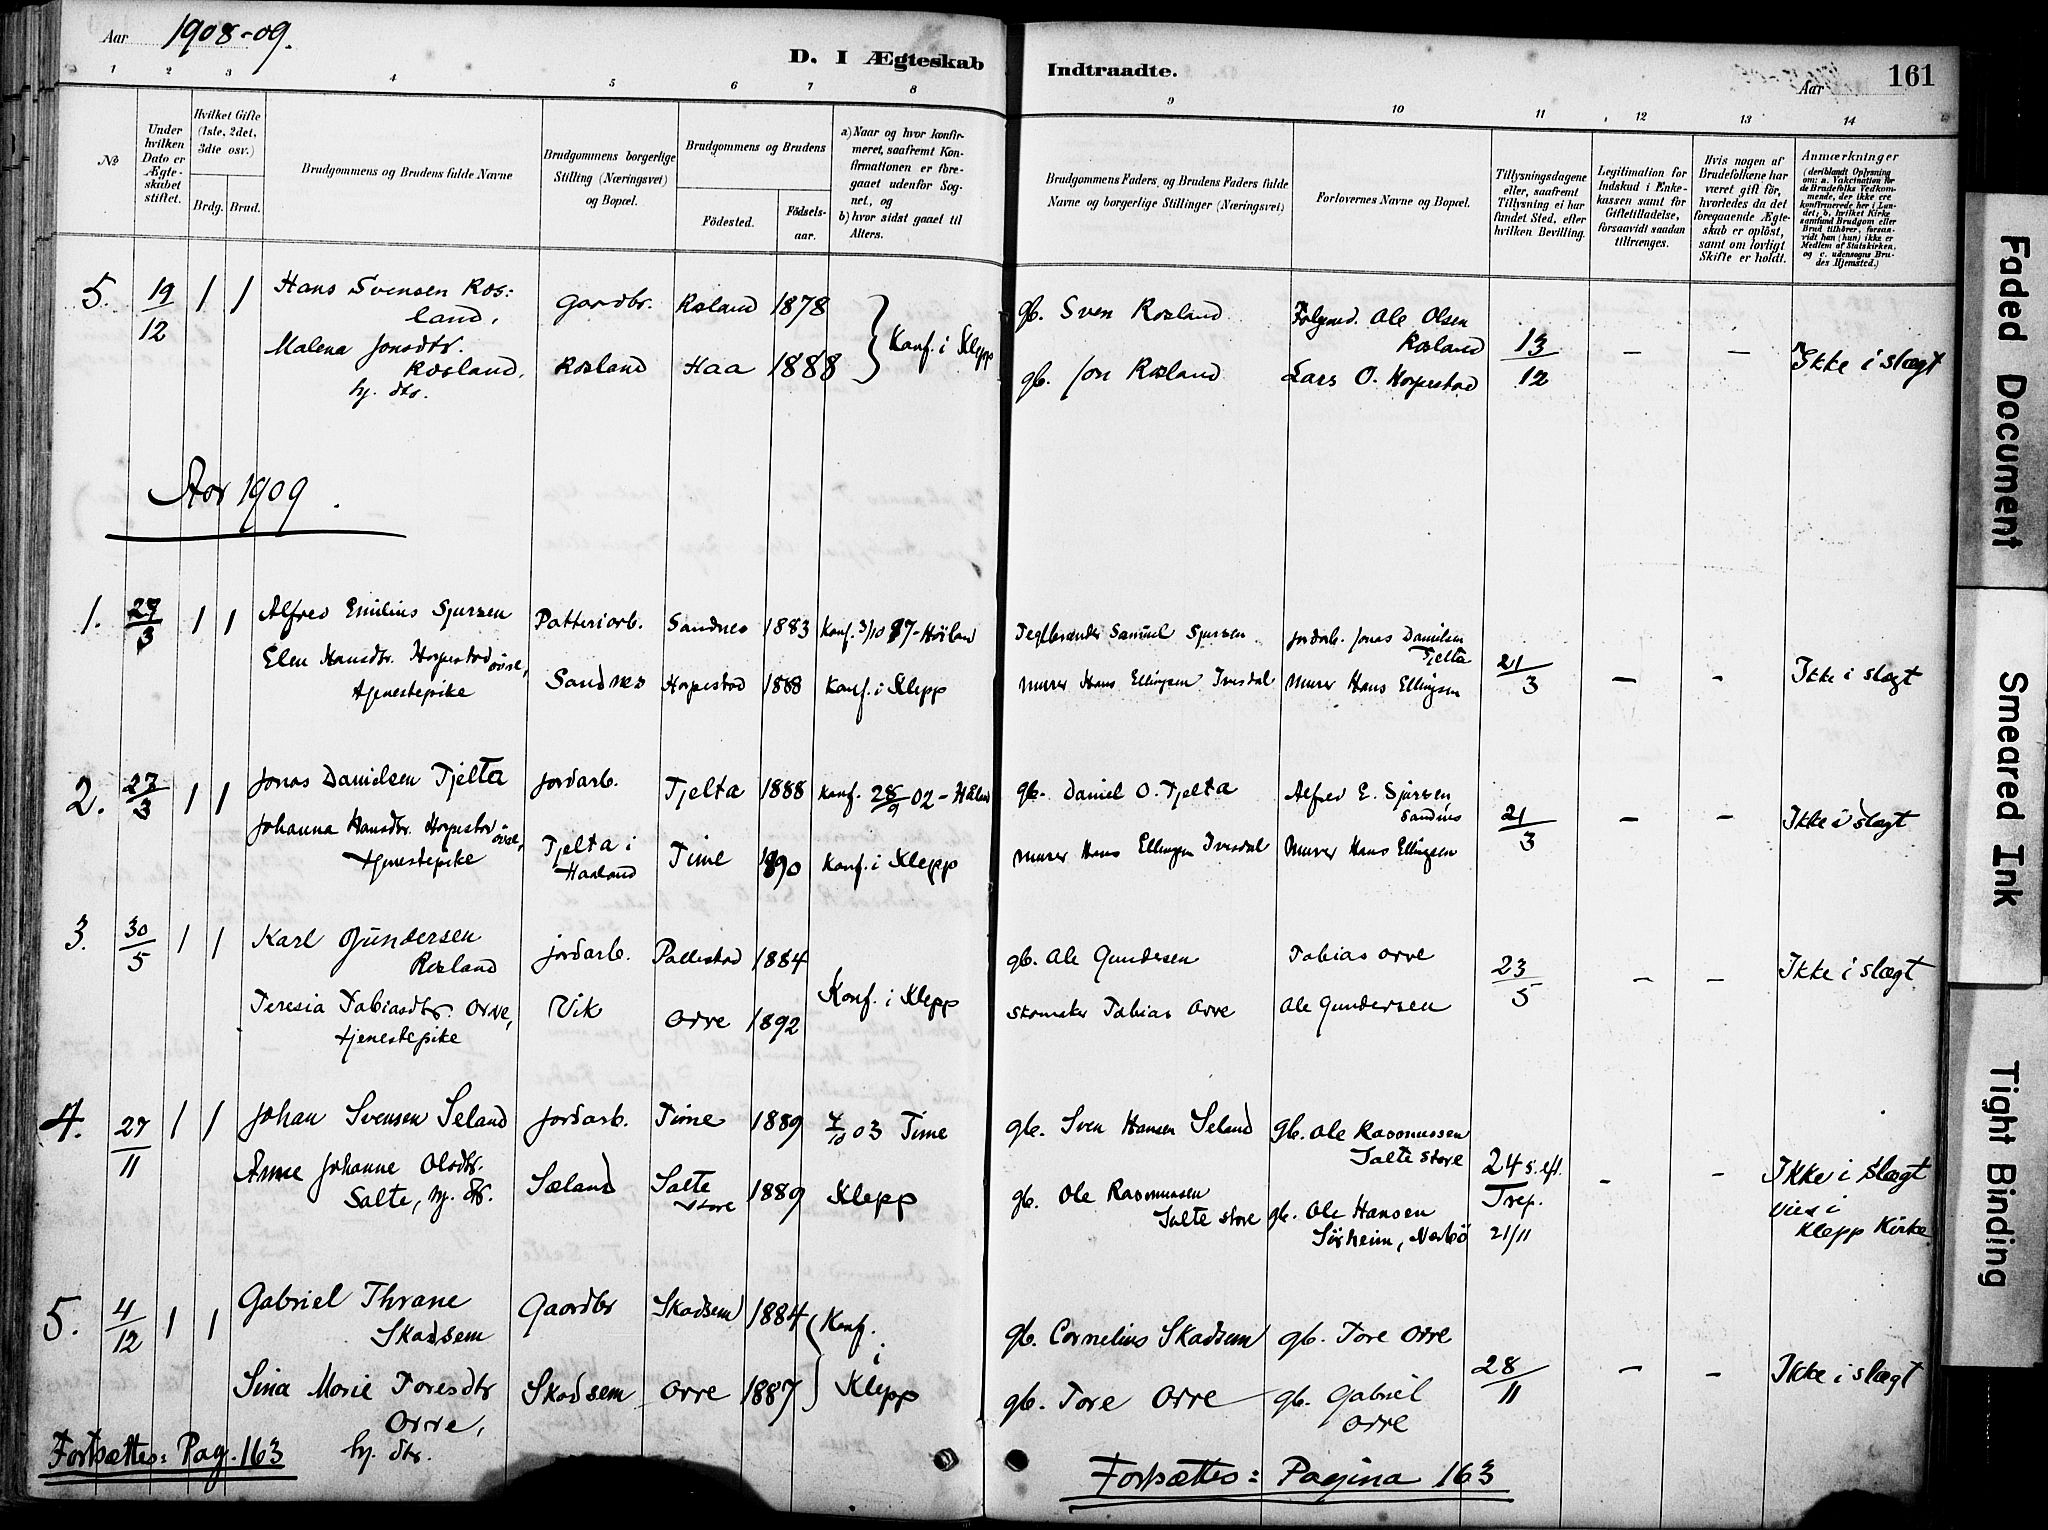 Aar 1908-09.
D. I Ægteskab Indtraadte.
Aar
161
1 2 3 4 5 6 7 8 9 10 11 12 13 14
№
Under hvilken Dato er Ægteskabet stiftet.
Hvilket Gifte (1ste, 2det, 3dte osv.)
Brdg. Brud.
Brudgommens og Brudens fulde Navne
Brudgommens borgerlige Stilling (Næringsvei) og Bopæl.
Brudgommens og Brudens
Födested.
Födsels-aar.
a) Naar og hvor konfirmeret, saafremt Konfirmationen er foregaaet udenfor Sognet, og
b) hvor sidst gaaet til Alters.
Brudgommens Faders og Brudens Faders fulde Navne og borgerlige Stillinger (Næringsvei)
Forlovernes Navne og Bopæl.
Tillysningsdagene eller, saafremt Tillysning ei har fundet Sted, efter hvilken Bevilling.
Legitimation for Indskud i Enkekassen samt for Giftetilladelse, forsaavidt saadan tiltrænges.
Hvis nogen af Brudefolkene har været gift för, hvorledes da det foregaaende Ægteskab er oplöst, samt om lovligt Skifte er holdt.
Anmærkninger
(deriblandt Oplysning om: a. Vakcination for de Brudefolks Vedkommende, der ikke ere konfirmerede her i Landet; b. hvilket Kirkesamfund Brudgom eller Brud tilhörer, forsaavidt han (hun) ikke er Medlem af Statskirken, og c. udensogns Brudes Hjemsted.)
5. 19/12 1 1 Hans Svensen Rosland, Gardbr. Rosland 1878 } Konf. i Klepp gb. Sven Rosland Folgemd. Ole Olsen Rosland 13/12 — — Ikke i slægt
Malena Jonsdtr. Rosland, hj. dtr. Rosland Haa 1888 gb. Jon Rosland Lars O. Horpestad
Aar 1909.
1. 27/3 1 1 Alfred Emilius Sjursen Potteriarb. Sandnes 1883 Konf. 3/10 97 - Höiland Teglbrænder Samuel Sjursen jordarb. Jonas Danielsen Tjelta 21/3 — - Ikke i slægt
Elen Hansdtr. Horpestad övre, tjenestepike Sandnes Horpestad 1888 Konf. i Klepp murer Hans Ellingsen Ivesdal Murer Hans Ellingsen
2. 27/3 1 1 Jonas Danielsen Tjelta jordarb. Tjelta 1888 Konf. 28/9 02 - Håland gb. Daniel O. Tjelta Alfred E. Sjursen Sandnes 21/3 — — Ikke i slægt
Johanna Hansdtr. Horpestad övre, tjenestepike Tjelta i Haaland Time 1890 Konf. i Klepp murer Hans Ellingsen Ivesdal Murer Hans Ellingsen
3. 30/5 1 1 Karl Gundersen Rosland jordarb. Pollestad 1884 Konf. i Klepp gb. Ole Gundersen Tobias Orre 23/5 — — Ikke i slægt
Teresia Tobiasdtr. Orre, tjenestepike Vik Orre 1892 skomaker Tobias Orre Ole Gundersen
4. 27/11 1 1 Johan Svensen Seland jordarb. Time 1889 4/10 03 Time gb. Sven Hansen Seland gb. Ole Rasmussen Salte store 24 s. eft. Trep. 21/11 - - Ikke i slægt
Anne Johanne Olsdtr. Salte, hj. dtr. Sæland Salte store 1889 Klepp gb. Ole Rasmussen Salte store gb. Ole Hansen Sörheim, Nærbö viet i Klepp Kirke
5. 4/12 1 1 Gabriel Thrane Skadsem Gaardbr Skadsem 1884 } Konf. i Klepp gb. Cornelius Skadsem gb. Tore Orre 28/11 — - Ikke i slægt
Sina Marie Toresdtr Orre, hj. dtr. Skadsem Orre 1887 gb. Tore Orre gb. Gabriel Orre
Fortsættes: Pag. 163
Fortsættes: Pagina 163
Faded Document
Smeared Ink
Tight Binding